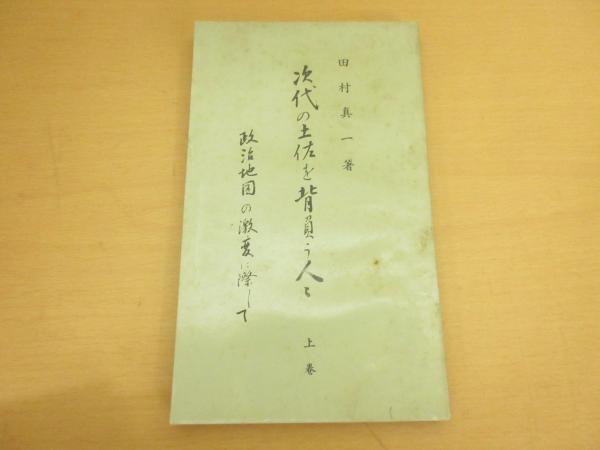 田村真一著
次代の土佐を背負う人々
上巻
政治地図の激変に際して